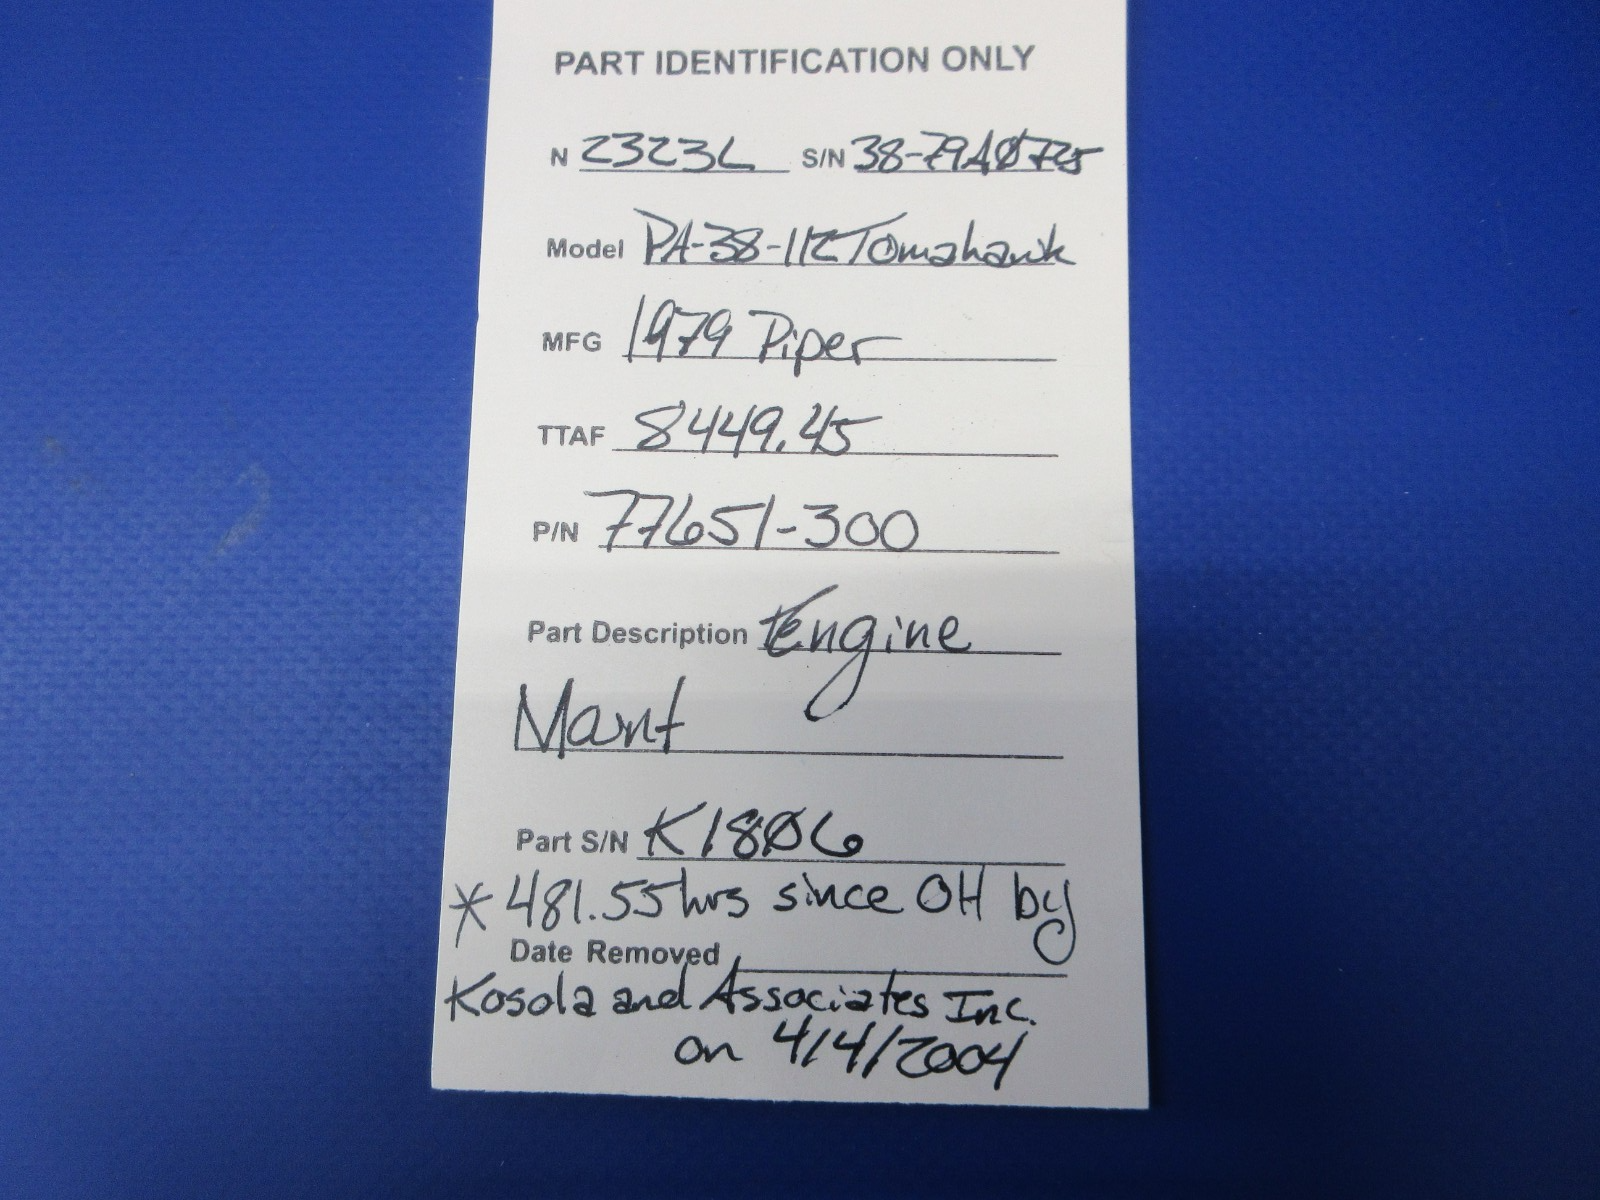 PART IDENTIFICATION ONLY
N 2323L S/N 38-79A0725
Model PA-38-112 Tomahawk
MFG 1979 Piper
TTAF 8449.45
P/N 77651-300
Part Description Engine
Mount
Part S/N K1806
* 481.55 hrs since OH by
Date Removed
Kosola and Associates Inc.
on 4/4/2004